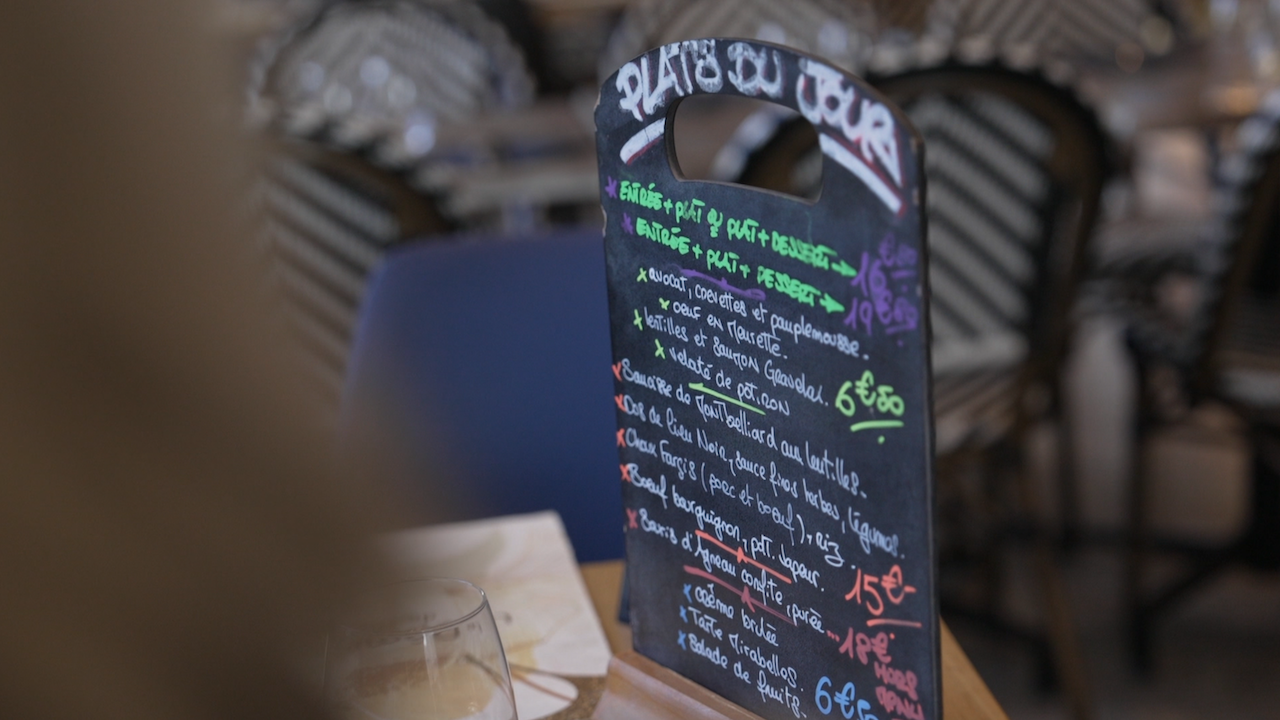 PLATS DU JOUR
ENTRÉE + PLAT OU PLAT + DESSERT → 16€
ENTRÉE + PLAT + DESSERT → 19€
avocat, crevettes et pamplemousse.
oeuf en Meurette.
lentilles et Saumon Gravelax. 6€50
velouté de potiron
Saucisse de Montbelliard aux lentilles.
Dos de lieu Noir, sauce fines herbes, légumes.
Choux Farçis (porc et boeuf), riz.
Boeuf bourguignon, pot. vapeur. 15€-
Souris d'Agneau confite, purée... 18€ HORS MENU
crème brûlée
Tarte Mirabelles.
Salade de fruits. 6€50